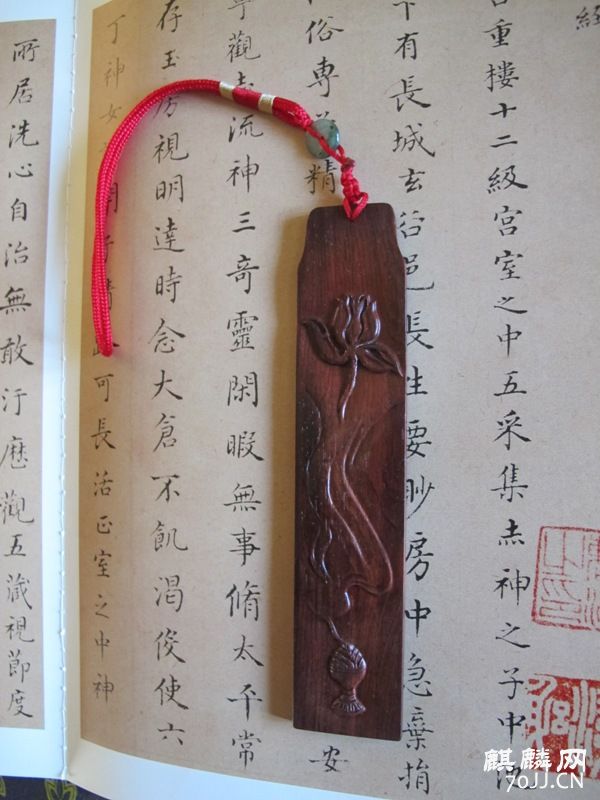 經
重樓十二級宮室之中五采集赤神之子中池
下有長城玄谷邑長生要眇房中急棄捐
俗専精
安
觀志流神三奇靈閑暇無事脩太平常
存玉房視明達時念大倉不飢渴役使六
丁神女可長活正室之中神
所居洗心自治無敢汙歷觀五藏視節度
麒麟网
70JJ.CN